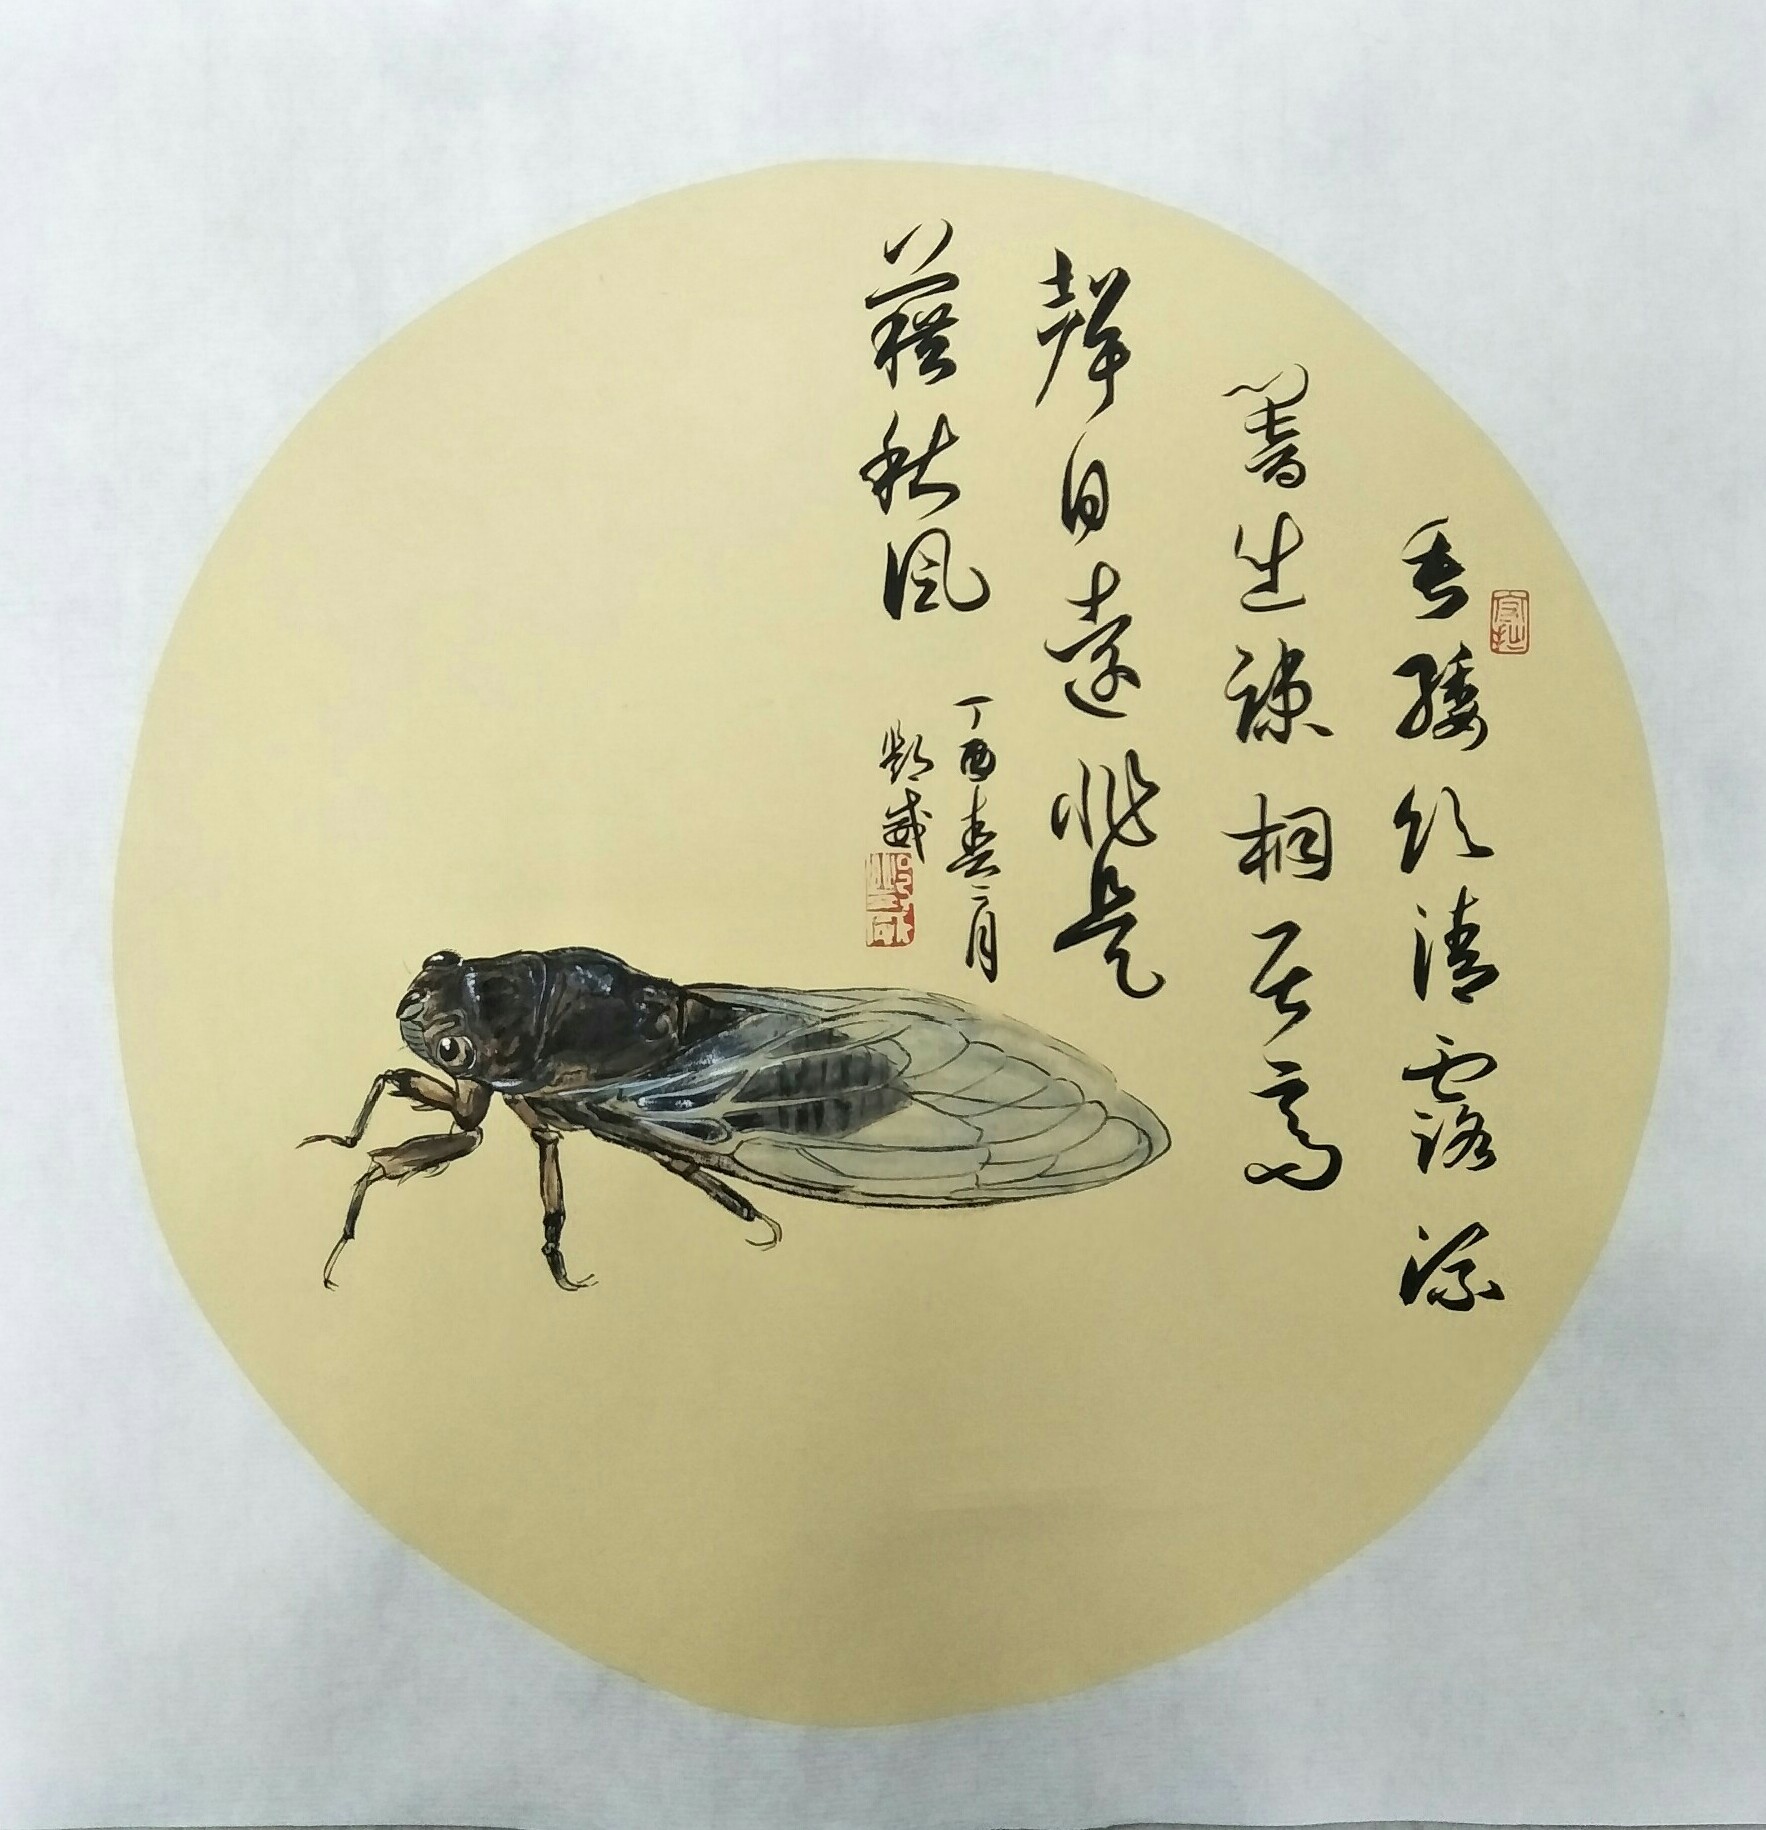 垂緌飲清露流
響出疎桐居高
聲自遠非是
藉秋風
丁酉春二月